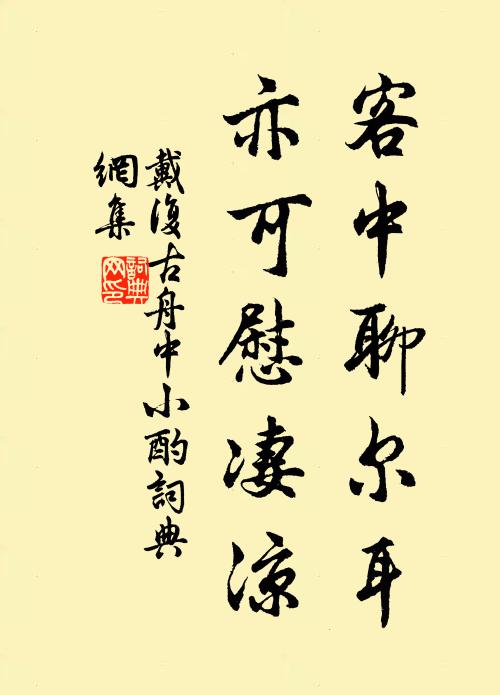 客中聊尔耳
亦可慰凄凉
戴復古舟中小酌詞典
網集
詞典網印